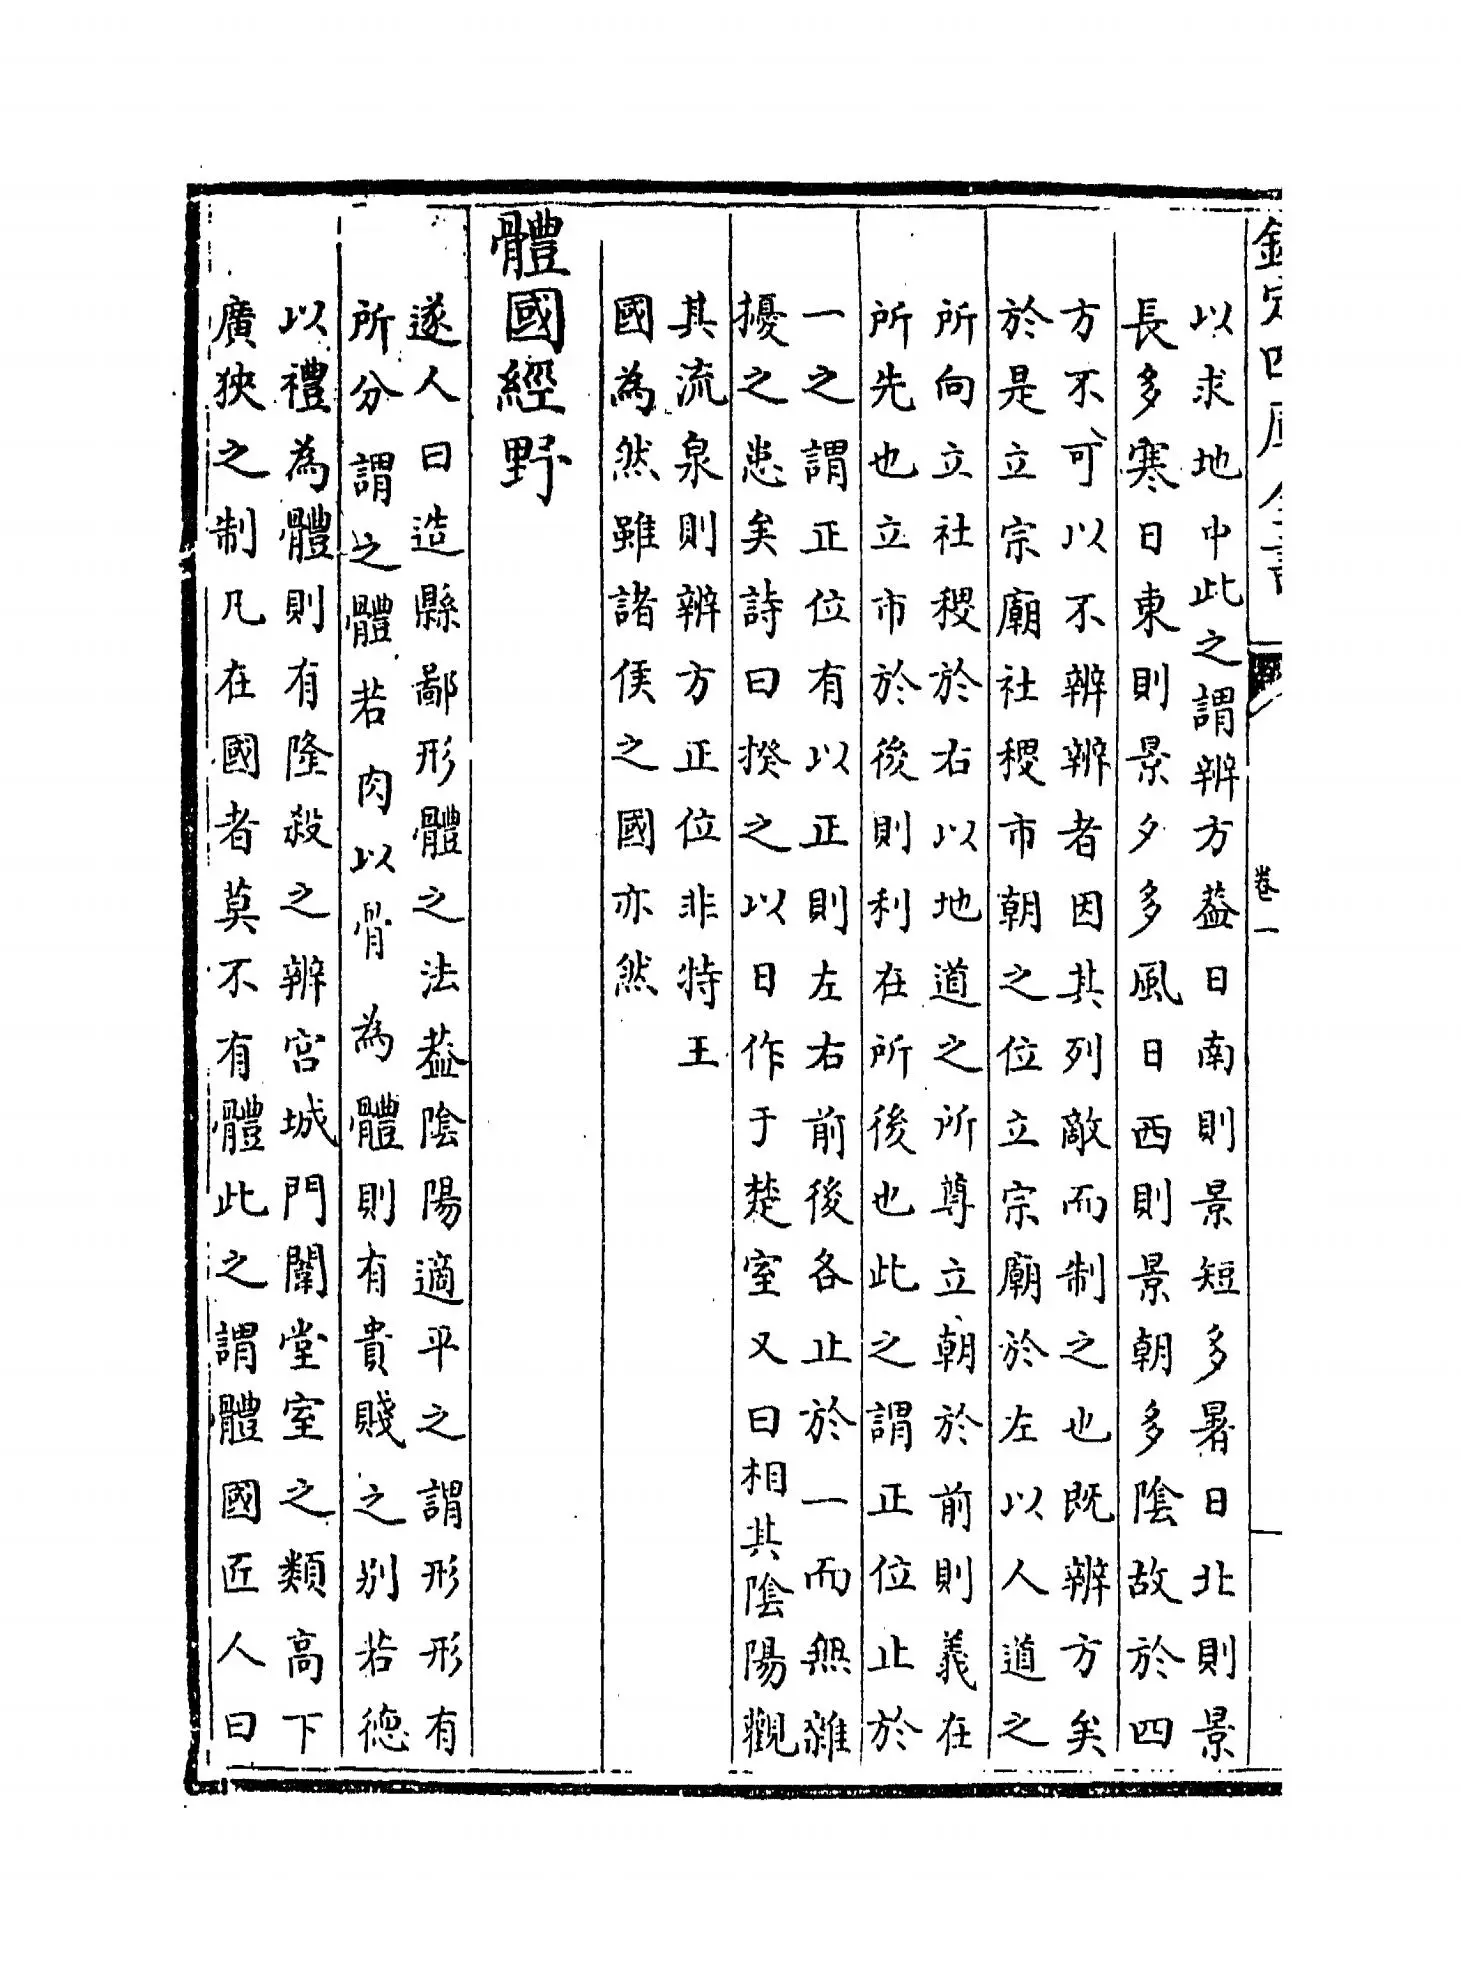 欽定四庫全書
卷一
以求地中此之謂辨方葢日南則景短多暑日北則景
長多寒日東則景夕多風日西則景朝多陰故於四
方不可以不辨辨者因其列敵而制之也既辨方矣
於是立宗廟社稷市朝之位立宗廟於左以人道之
所向立社稷於右以地道之所尊立朝於前則義在
所先也立市於後則利在所後也此之謂正位止於
一之謂正位有以正則左右前後各止於一而無雜
擾之患矣詩曰揆之以日作于楚室又曰相其陰陽觀
其流泉則辨方正位非特王
國為然雖諸侯之國亦然
體國經野
遂人曰造縣鄙形體之法葢陰陽適平之謂形形有
所分謂之體若肉以骨為體則有貴賤之别若德
以禮為體則有隆殺之辨宫城門闈堂室之類高下
廣狹之制凡在國者莫不有體此之謂體國匠人曰